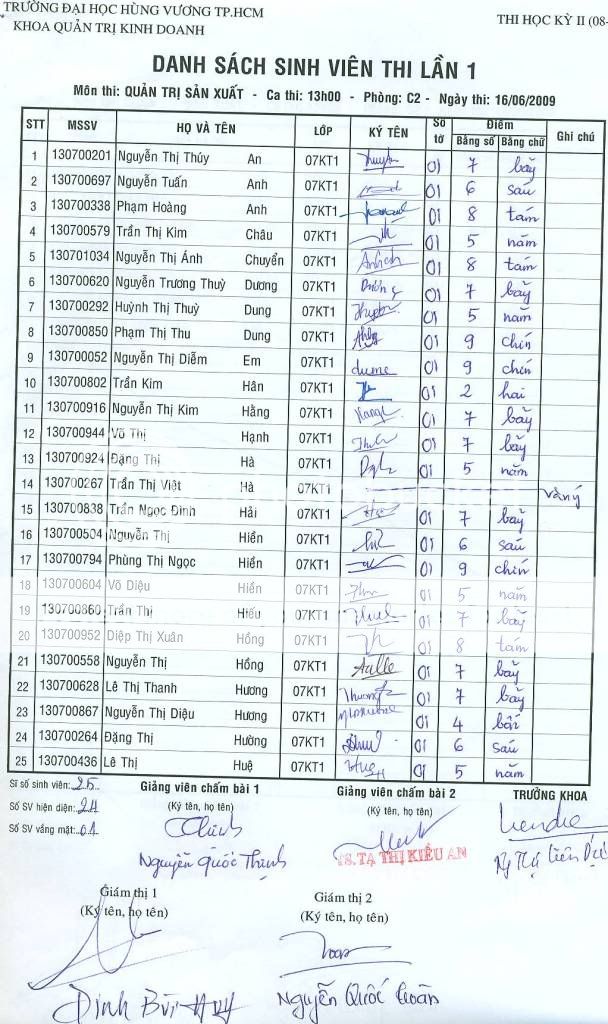 TRƯỜNG ĐẠI HỌC HÙNG VƯƠNG TP.HCM
KHOA QUẢN TRỊ KINH DOANH
THI HỌC KỲ II (08-
DANH SÁCH SINH VIÊN THI LẦN 1
Môn thi: QUẢN TRỊ SẢN XUẤT - Ca thi: 13h00 - Phòng: C2 - Ngày thi: 16/06/2009
STT MSSV HỌ VÀ TÊN LỚP KÝ TÊN Số tờ Điểm Ghi chú
Bằng số Bằng chữ
1 130700201 Nguyễn Thị Thúy An 07KT1 01 7 bảy
2 130700697 Nguyễn Tuấn Anh 07KT1 01 6 sáu
3 130700338 Phạm Hoàng Anh 07KT1 01 8 tám
4 130700579 Trần Thị Kim Châu 07KT1 01 5 năm
5 130701034 Nguyễn Thị Ánh Chuyển 07KT1 01 8 tám
6 130700620 Nguyễn Trương Thuỳ Dương 07KT1 Dương 01 7 bảy
7 130700292 Huỳnh Thị Thuỳ Dung 07KT1 01 5 năm
8 130700850 Phạm Thị Thu Dung 07KT1 01 9 chín
9 130700052 Nguyễn Thị Diễm Em 07KT1 01 9 chín
10 130700802 Trần Kim Hân 07KT1 01 2 hai
11 130700916 Nguyễn Thị Kim Hằng 07KT1 01 7 bảy
12 130700944 Võ Thị Hạnh 07KT1 01 7 bảy
13 130700924 Đặng Thị Hà 07KT1 01 5 năm
14 130700267 Trần Thị Việt Hà 07KT1 vắng
15 130700838 Trần Ngọc Đình Hải 07KT1 01 7 bảy
16 130700504 Nguyễn Thị Hiền 07KT1 01 6 sáu
17 130700794 Phùng Thị Ngọc Hiền 07KT1 01 9 chín
18 130700604 Võ Diệu Hiền 07KT1 01 5 năm
19 130700860 Trần Thị Hiếu 07KT1 01 7 bảy
20 130700952 Diệp Thị Xuân Hồng 07KT1 01 8 tám
21 130700558 Nguyễn Thị Hồng 07KT1 01 7 bảy
22 130700628 Lê Thị Thanh Hương 07KT1 01 7 bảy
23 130700867 Nguyễn Thị Diệu Hương 07KT1 01 4 bốn
24 130700264 Đặng Thị Hường 07KT1 01 6 sáu
25 130700436 Lê Thị Huệ 07KT1 Huệ 01 5 năm
Sĩ số sinh viên: 25
Số SV hiện diện: 24
Số SV vắng mặt: 01
Giảng viên chấm bài 1
(Ký tên, họ tên)
Nguyễn Quốc Thịnh
Giảng viên chấm bài 2
(Ký tên, họ tên)
TS. TẠ THỊ KIỀU AN
TRƯỞNG KHOA
Giám thị 1
(Ký tên, họ tên)
Đinh Bùi Huy
Giám thị 2
(Ký tên, họ tên)
Nguyễn Quốc Hoàn